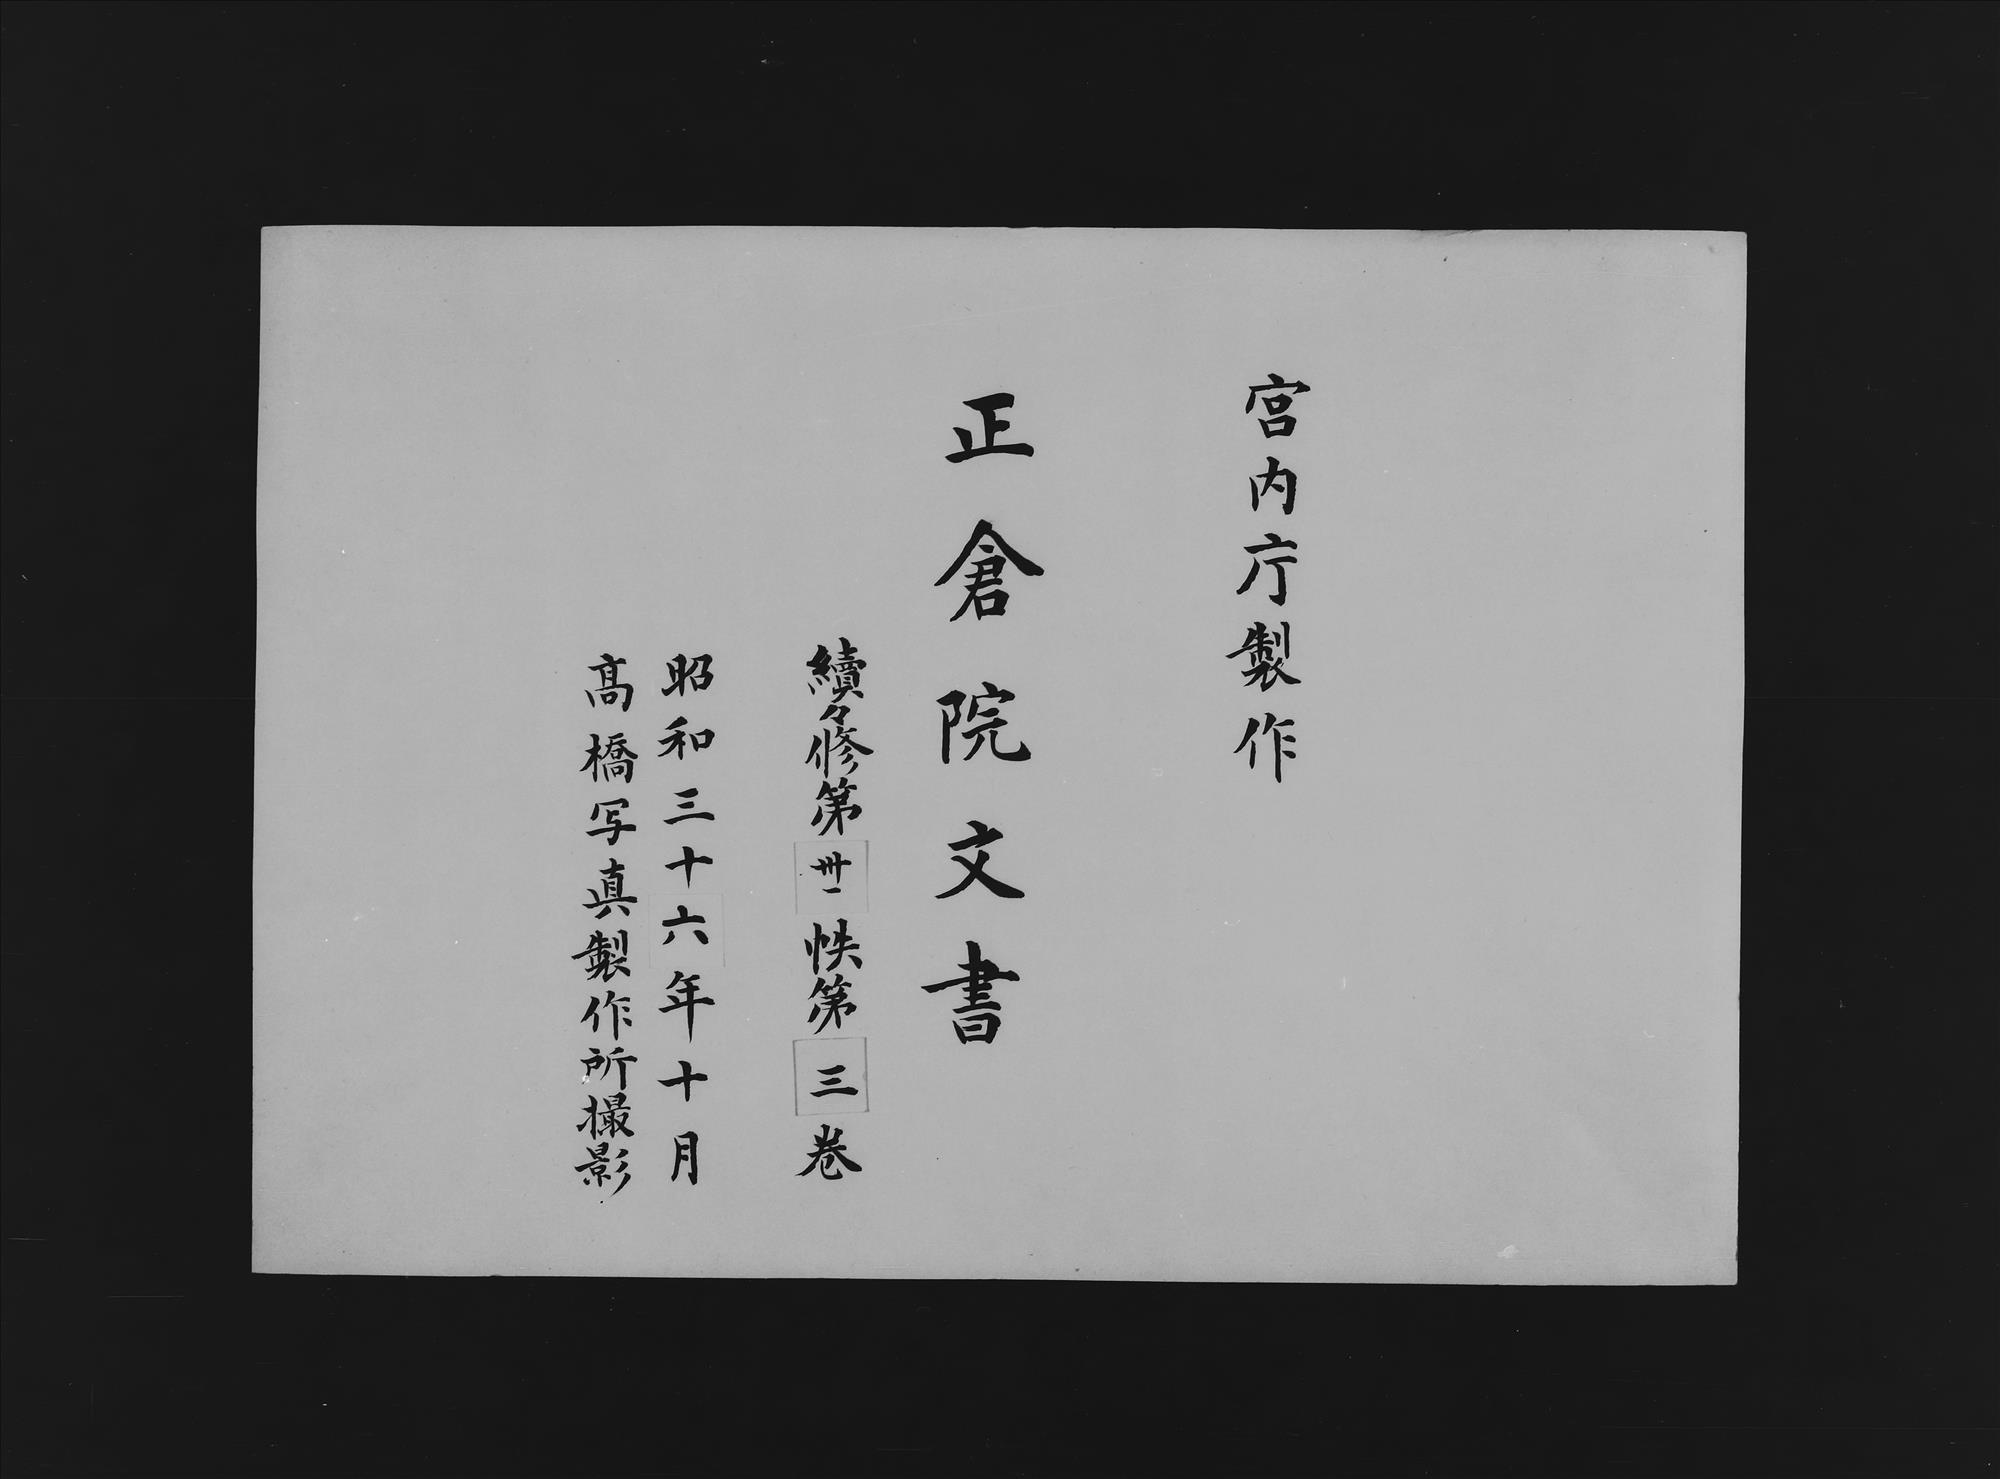 宮内庁製作
正倉院文書
續々修第卌一帙第三巻
昭和三十六年十月
髙橋写真製作所撮影